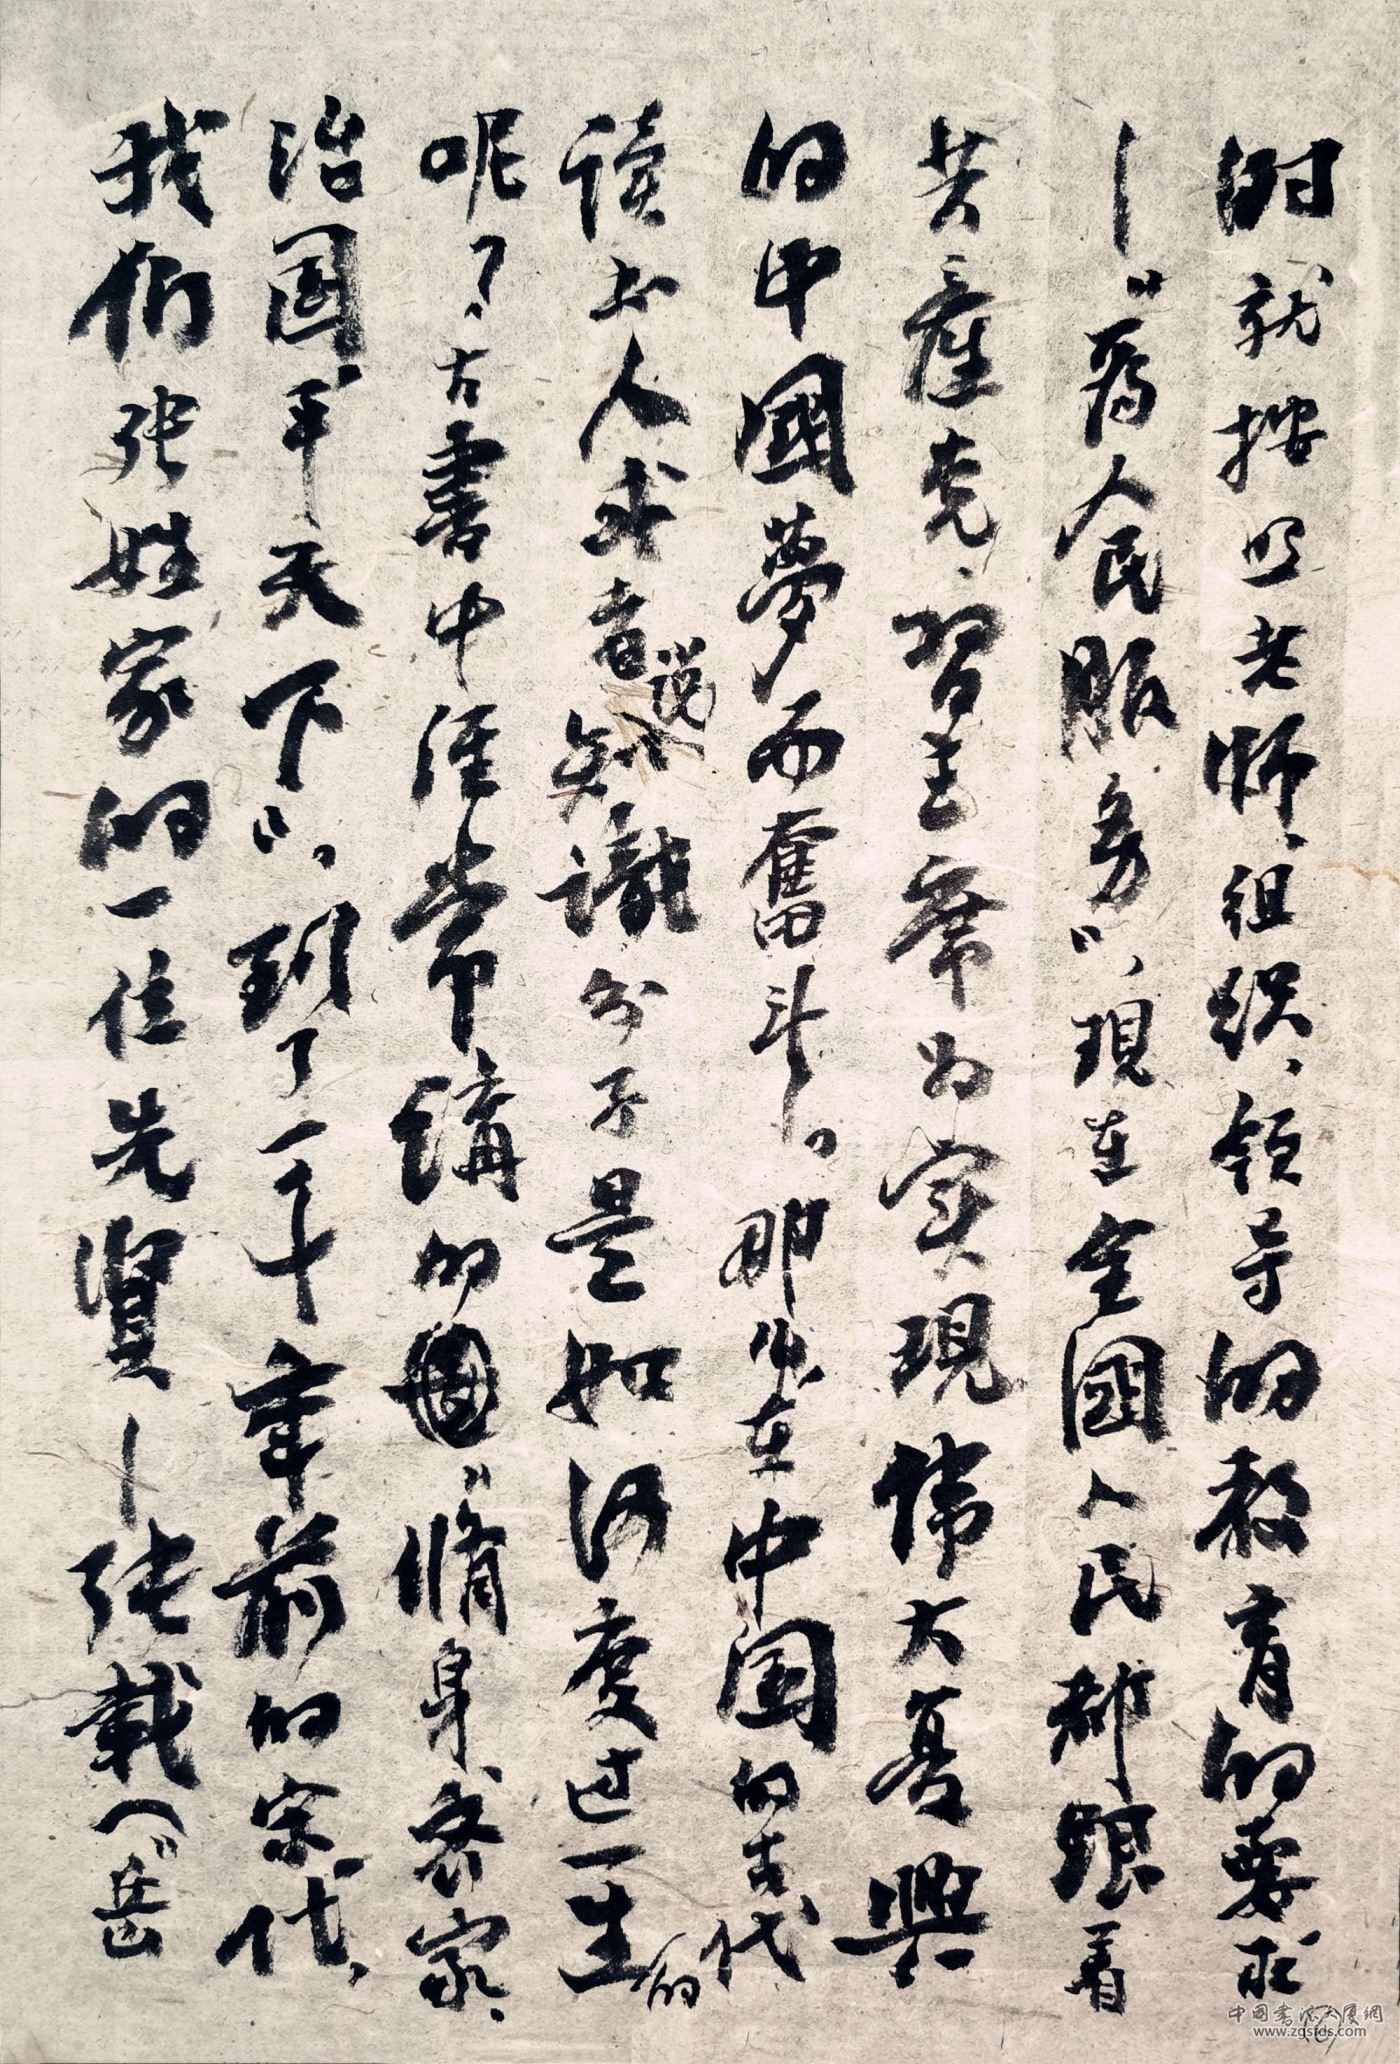 时就按照老师、组织、领导的教育的要求
—“为人民服务”，現在全國人民都跟着
共產党、習主席为实現偉大复興
的中國夢而奮斗—。那么在中国的古代
读书人或者说知識分子是如何度过一生的
呢？、古書中經常講的“脩身、齐家、
治国、平天下”，到了一千年前的宋代，
我们张姓家的一位先賢—张載（“岳
中国书法大厦網
www.zgsfds.com